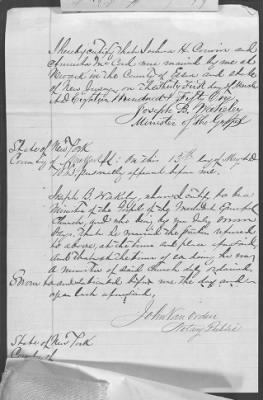 I hereby certify that Joshua H. Erwin and
were married by me at
in the County of Essex and State
of New Jersey on the Thirty First day of March
A.D. Eighteen Hundred & Fifty One
Joseph B. Wakeley
Minister of the Gospel
State of New York
County of On this 15th day of May A.D.
personally appeared before me
Joseph B. Wakeley, whom I certify to be a
Minister of the Methodist Episcopal
Church, and who being by me duly sworn
says that he married the parties referred
to above, at the time and place aforesaid,
and that at the time of so doing he was
a minister of said Church duly
Sworn to and subscribed before me the day and
year last aforesaid,
John Van Orden
Notary Public
State of New York
County of